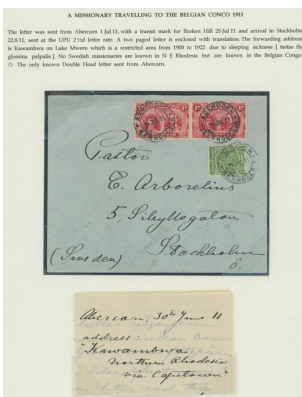 A MISSIONARY TRAVELLING TO THE BELGIAN CONCO 1911
The letter was sent from Abercorn 1 Jul 11, with a transit mark for Broken Hill 25 Jul 11 and arrival in Stockholm
22.8.11, sent at the UPU 2 ½d letter rate. A two paged letter is enclosed with translation. The forwarding address
is Kawambwa on Lake Mweru which is a restricted area from 1908 to 1922 due to sleeping sickness [ tsetse fly
glossina palpalis ]. No Swedish missionaries are known in N E Rhodesia but are known in the Belgian Congo.
The only known Double Head letter sent from Abercorn.
Pastor
E. Arborelius
5,
Stockholm
(Sweden)
Abercorn, 30th June 11
address:
"Kawambwa
Northern Rhodesia
via Capetown"